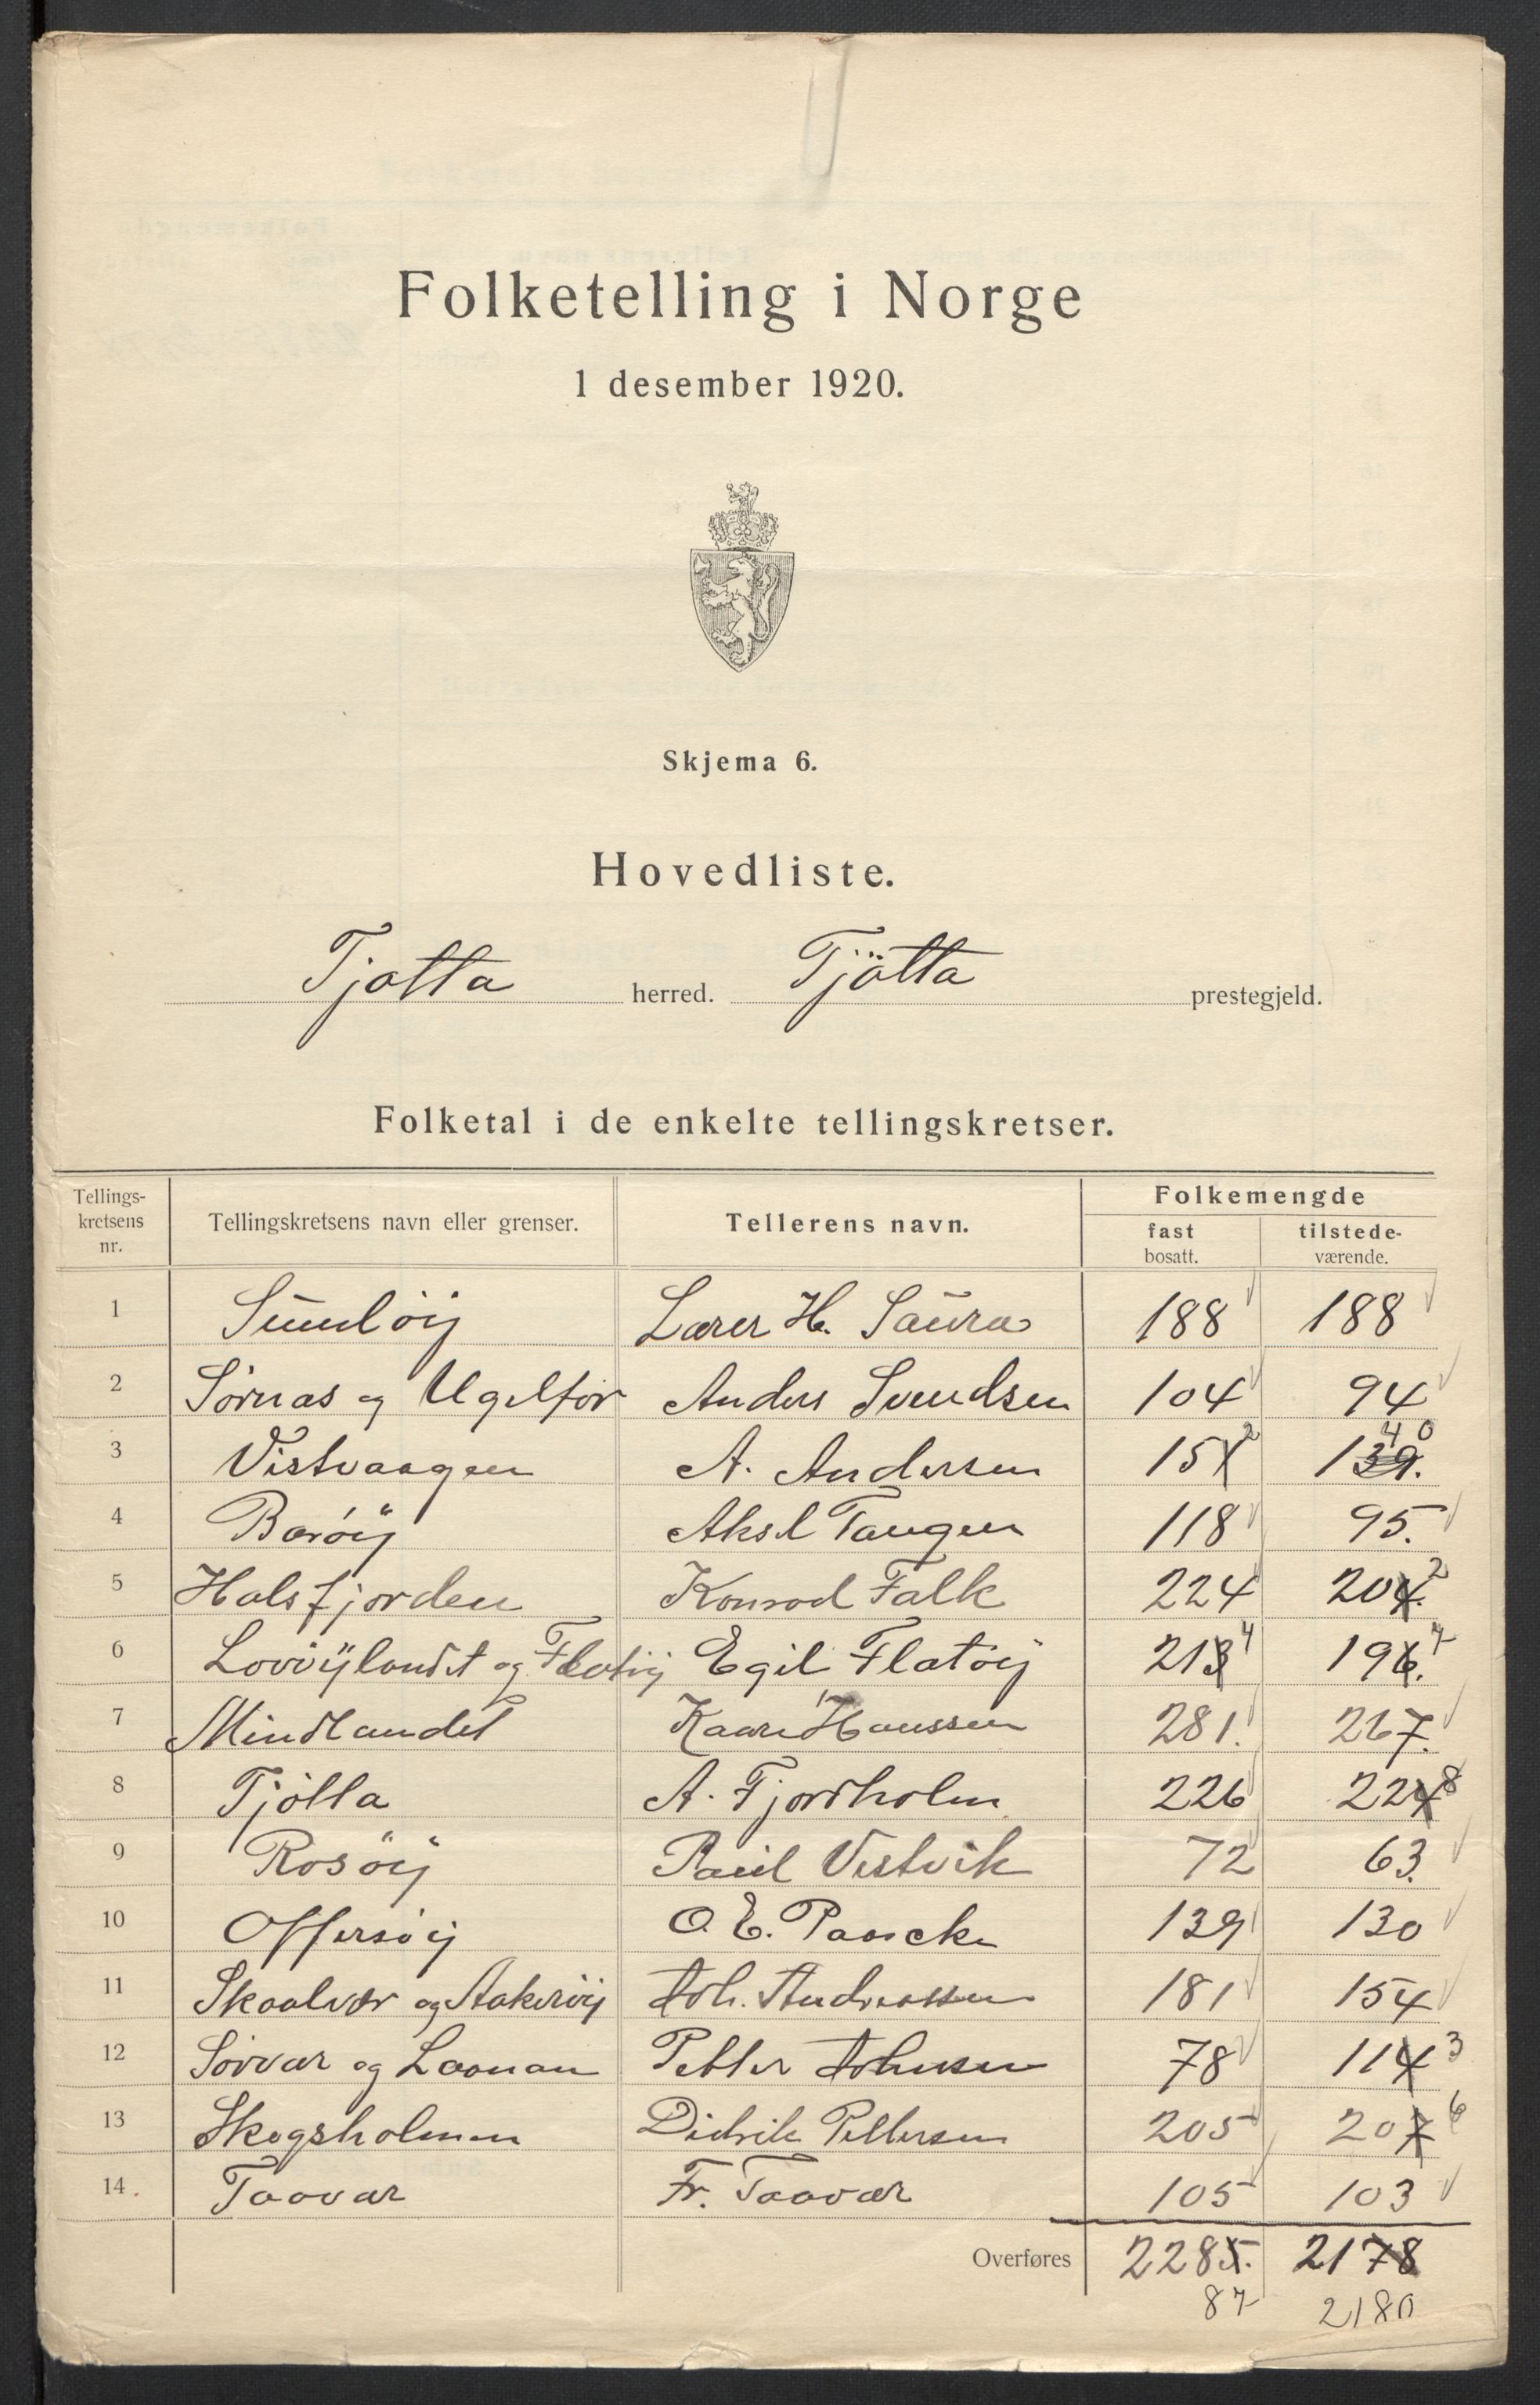 Folketelling i Norge
1 desember 1920.
Skjema 6.
Hovedliste.
Tjøtta herred. Tjøtta prestegjeld.
Folketal i de enkelte tellingskretser.
Tellings-kretsens nr. Tellingskretsens navn eller grenser. Tellerens navn. Folkemengde fast bosatt. tilstede-værende.
1 Lærer H. Saura 188 188
2 Sørnas og Anders Svendsen 104 94
3 Vistvaagen A. Andersen 151 2 139. 40
4 Barøy Aksel Tangen 118 95.
5 Halsfjorden Konrad Falk 224 204. 2
6 Lovøylandet og Flatøy Egil Flatøy 213 4 196. 7
7 Mindlandet Kaare Hanssen 281. 267.
8 Tjøtta A. Fjordholm 226 224 8
9 Rosøy Paul Vistvik 72 63.
10 Offersøy O. E. Paascke 139 130
11 Skaalvær og Aakerøy Joh. Andreassen 181 154
12 Sørvær og Laanan Petter Johnsen 78 114 3
13 Skogsholmen Didrik Pettersen 205 207 6
14. Taavær Fr. Taavær 105 103
Overføres 2285. 2178
87 2180